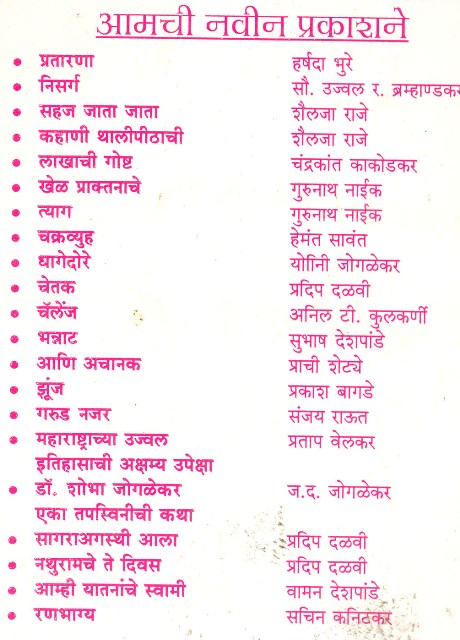 आमची नवीन प्रकाशने
• प्रतारणा हर्षदा भुरे
• निसर्ग सौ. उज्वल र. ब्रम्हाण्डकर
• सहज जाता जाता शैलजा राजे
• कहाणी थालीपीठाची शैलजा राजे
• लाखाची गोष्ट चंद्रकांत काकोडकर
• खेळ प्राक्तनाचे गुरुनाथ नाईक
• त्याग गुरुनाथ नाईक
• चक्रव्युह हेमंत सावंत
• धागेदोरे योगिनी जोगळेकर
• चेतक प्रदिप दळवी
• चॅलेंज अनिल टी. कुलकर्णी
• भन्नाट सुभाष देशपांडे
• आणि अचानक प्राची शेट्ये
• झूंज प्रकाश बागडे
• गरुड नजर संजय राऊत
• महाराष्ट्राच्या उज्वल प्रताप वेलकर
इतिहासाची अक्षम्य उपेक्षा
• डॉ. शोभा जोगळेकर ज.द. जोगळेकर
एका तपस्विनीची कथा
• सागराअगस्थी आला प्रदिप दळवी
• नथुरामचे ते दिवस प्रदिप दळवी
• आम्ही यातनांचे स्वामी वामन देशपांडे
• रणभाग्य सचिन कनिटकर